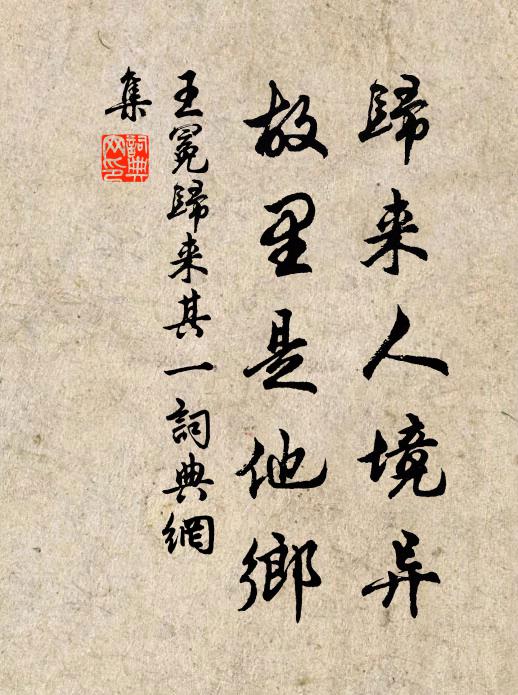 歸来人境异
故里是他鄉
王冕歸来其一詞典網
集
詞典
网印